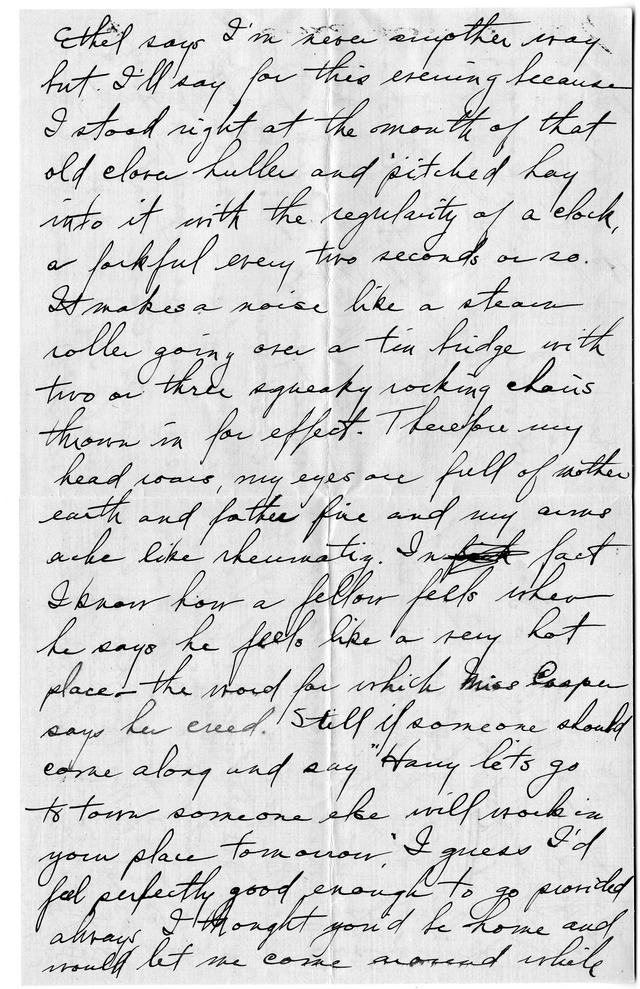 Ethel says I'm never another way
but I'll say for this evening because
I stood right at the mouth of that
old clover huller and pitched hay
into it with the regularity of a clock,
a forkful every two seconds or so.
It makes a noise like a steam
roller going over a tin bridge with
two or three squeaky rocking chairs
thrown in for effect. Therefore my
head roars, my eyes are full of mother
earth and father fire and my arms
ache like rheumatiz. In fact
I know how a fellow fells when
he says he feels like a very hot
place - the word for which Miss Casper
says her creed. Still if someone should
come along and say "Harry lets go
to town someone else will work in
your place tomorrow", I guess I'd
feel perfectly good enough to go provided
always I thought you'd be home and
would let me come around while